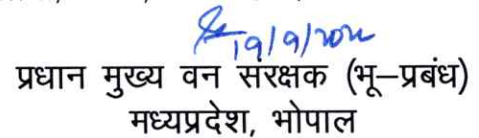 19/9/2022
प्रधान मुख्य वन संरक्षक (भू–प्रबंध)
मध्यप्रदेश, भोपाल